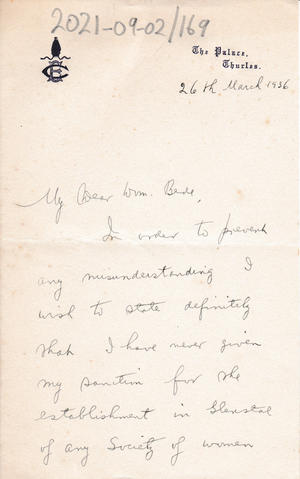 2021-09-02/169
The Palace,
Thurles.
26th March 1936
My Dear Dom. Bede,
In order to prevent
any misunderstanding I
wish to state definitely
that I have never given
my sanction for the
establishment in Glenstal
of any Society of women